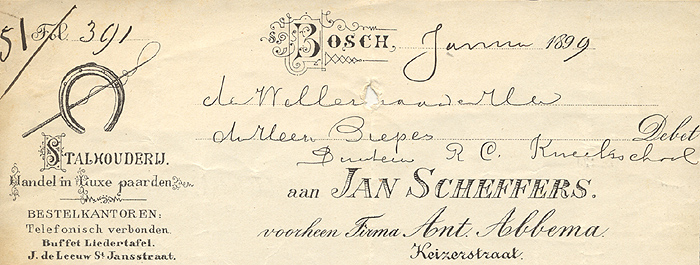 51/ Fol. 391
'S BOSCH, Januari 1899
de Weleerwaarde Heer
de Heer Biepes Debet
R. C. Kweekschool
aan JAN SCHEFFERS.
voorheen Firma Ant. Abbema.
Keizerstraat.
STALHOUDERIJ.
Handel in Luxe paarden
BESTELKANTOREN:
Telefonisch verbonden.
Buffet Liedertafel.
J. de Leeuw St Jansstraat.